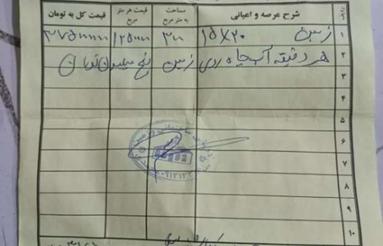 ردیف شرح عرصه و اعیانی مساحت به متر مربع قیمت هر متر مربع قیمت کل به تومان
۱ زمین ۲۰×۱۵ ۳۰۰
۲ هر دقیقه آب چاه روی زمین پنج میلیون تومان
۳
۴
۵
۶
۷
۸
۹
۱۰